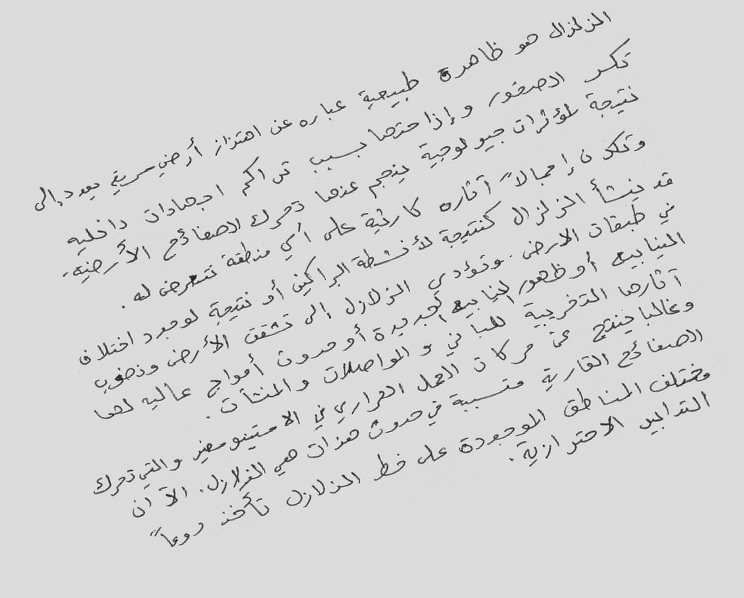 الزلزال هو ظاهرة طبيعية عباره عن اهتزاز أرضي سريع يعود إلى
تكسر الصخور وإزاحتها بسبب تراكم اجهادات داخليه
نتيجة لمؤثرات جيولوجية ينجم عنها تحرك الصفائح الأرضية.
وتكون إجمالاً آثاره كارثية على أي منطقة تتعرض له.
قد ينشأ الزلزال كنتيجة لأنشطة البراكين أو نتيجة لوجود اختلاف
في طبقات الارض. وتؤدي الزلازل الى تشقق الأرض ونضوب
الينابيع أو ظهور الينابيع الجديدة أو حدوث أمواج عاليه لها
آثارها التخريبية للمباني والمواصلات والمنشآت.
وغالبا ينتج عن حركات الحمل الحراري في الاستينوسفير والتي تحرك
الصفائح القارية متسببة في حدوث هزات هي الزلازل. الآ أن
مختلف المناطق الموجودة على خط الزلازل تأخذ دوماً
التدابير الاحترازية.